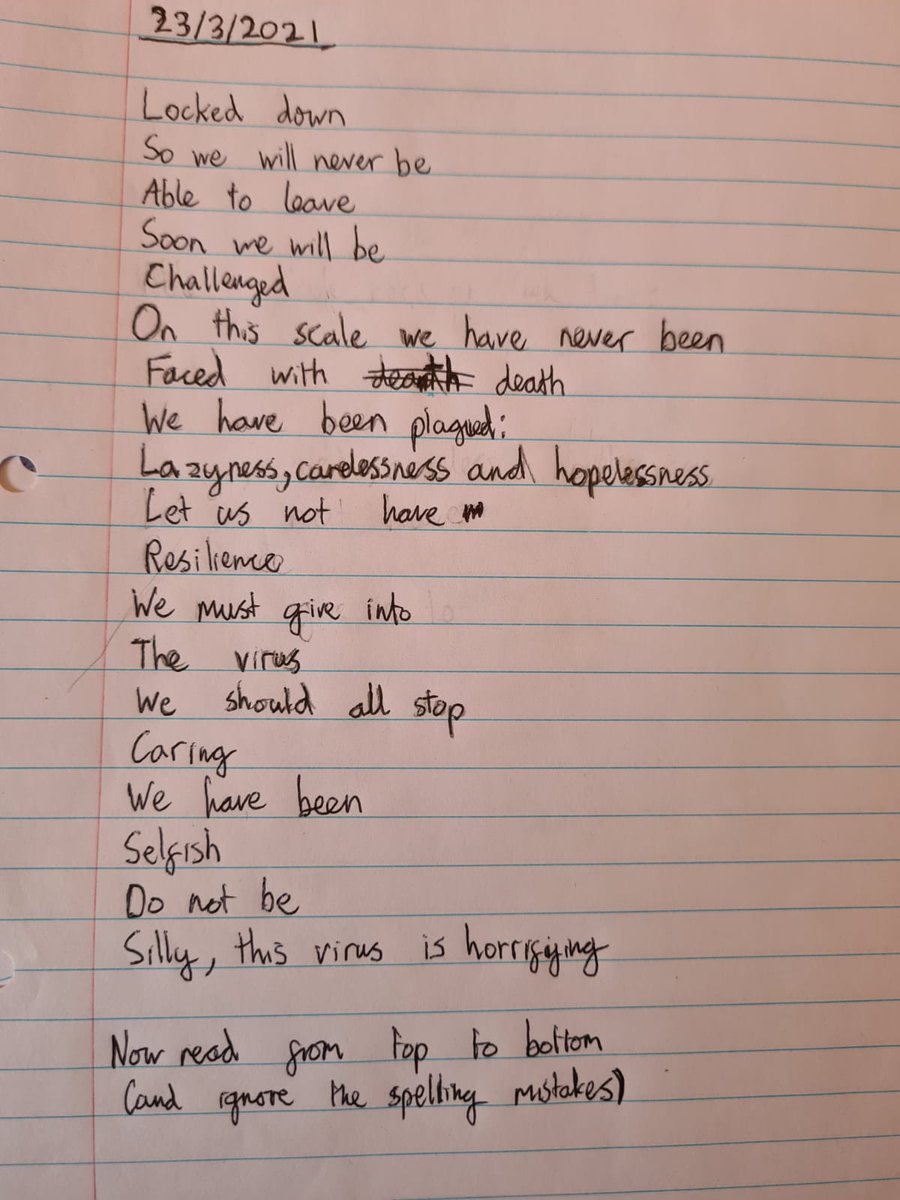 23/3/2021
Locked down
So we will never be
Able to leave
Soon we will be
Challenged
On this scale we have never been
Faced with death death
We have been plagued:
Lazyness, carelessness and hopelessness
Let us not have
Resilience
We must give into
The virus
We should all stop
Caring
We have been
Selfish
Do not be
Silly, this virus is horrifiying
Now read from top to bottom
(and ignore the spelling mistakes)